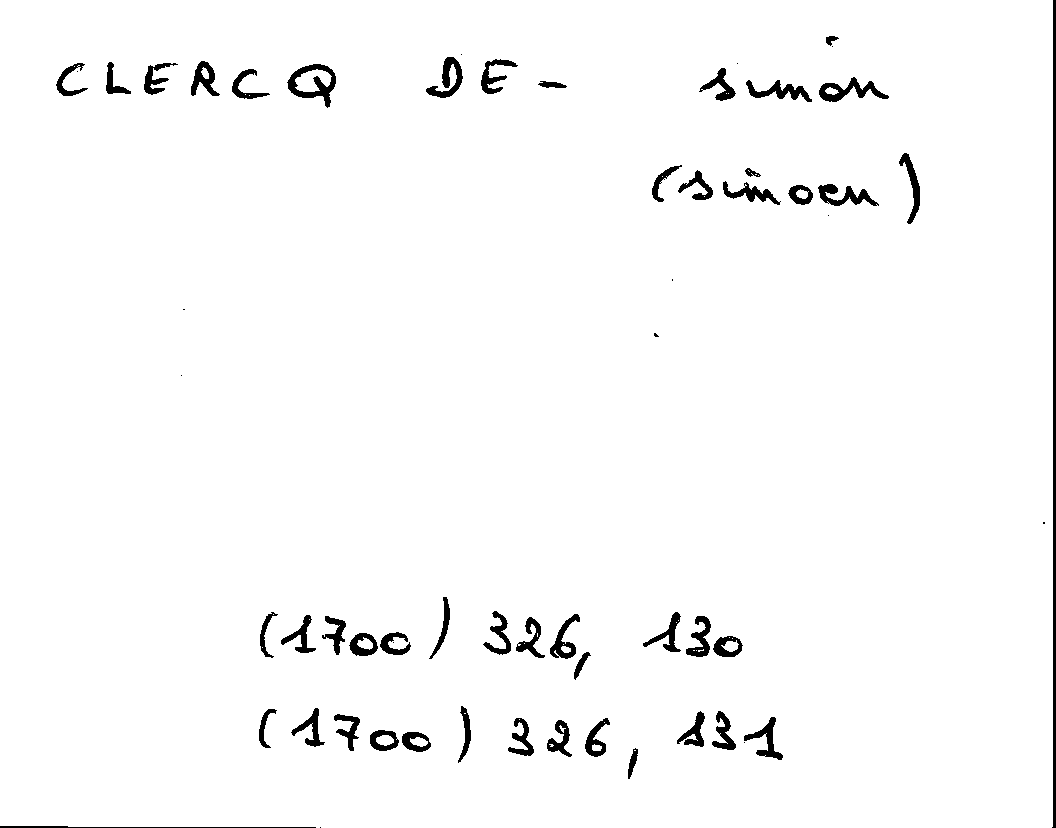 CLERCQ DE- simon
(simoen)
(1700) 326, 130
(1700) 326, 131